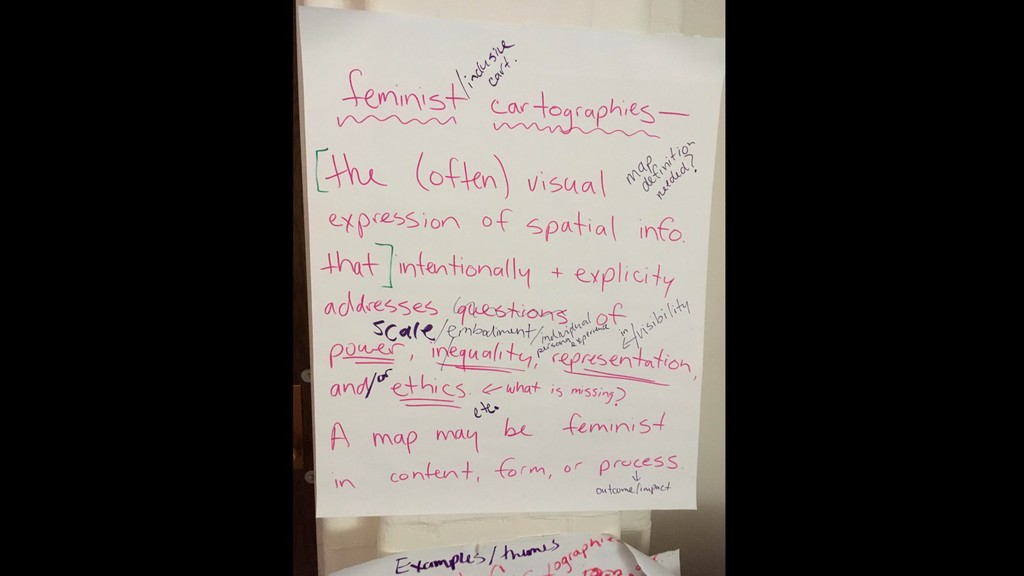 /inclusive
cart.
feminist cartographies—
[the (often) visual
map
definition
needed?
expression of spatial info.
that] intentionally + explicity
addresses (questions of
scale/embodiment/individual
personal experience
in/visibility
power, inequality, representation,
and/or ethics. ← what is missing?
etc.
A map may be feminist
in content, form, or process.
↓
outcome/impact
Examples/themes